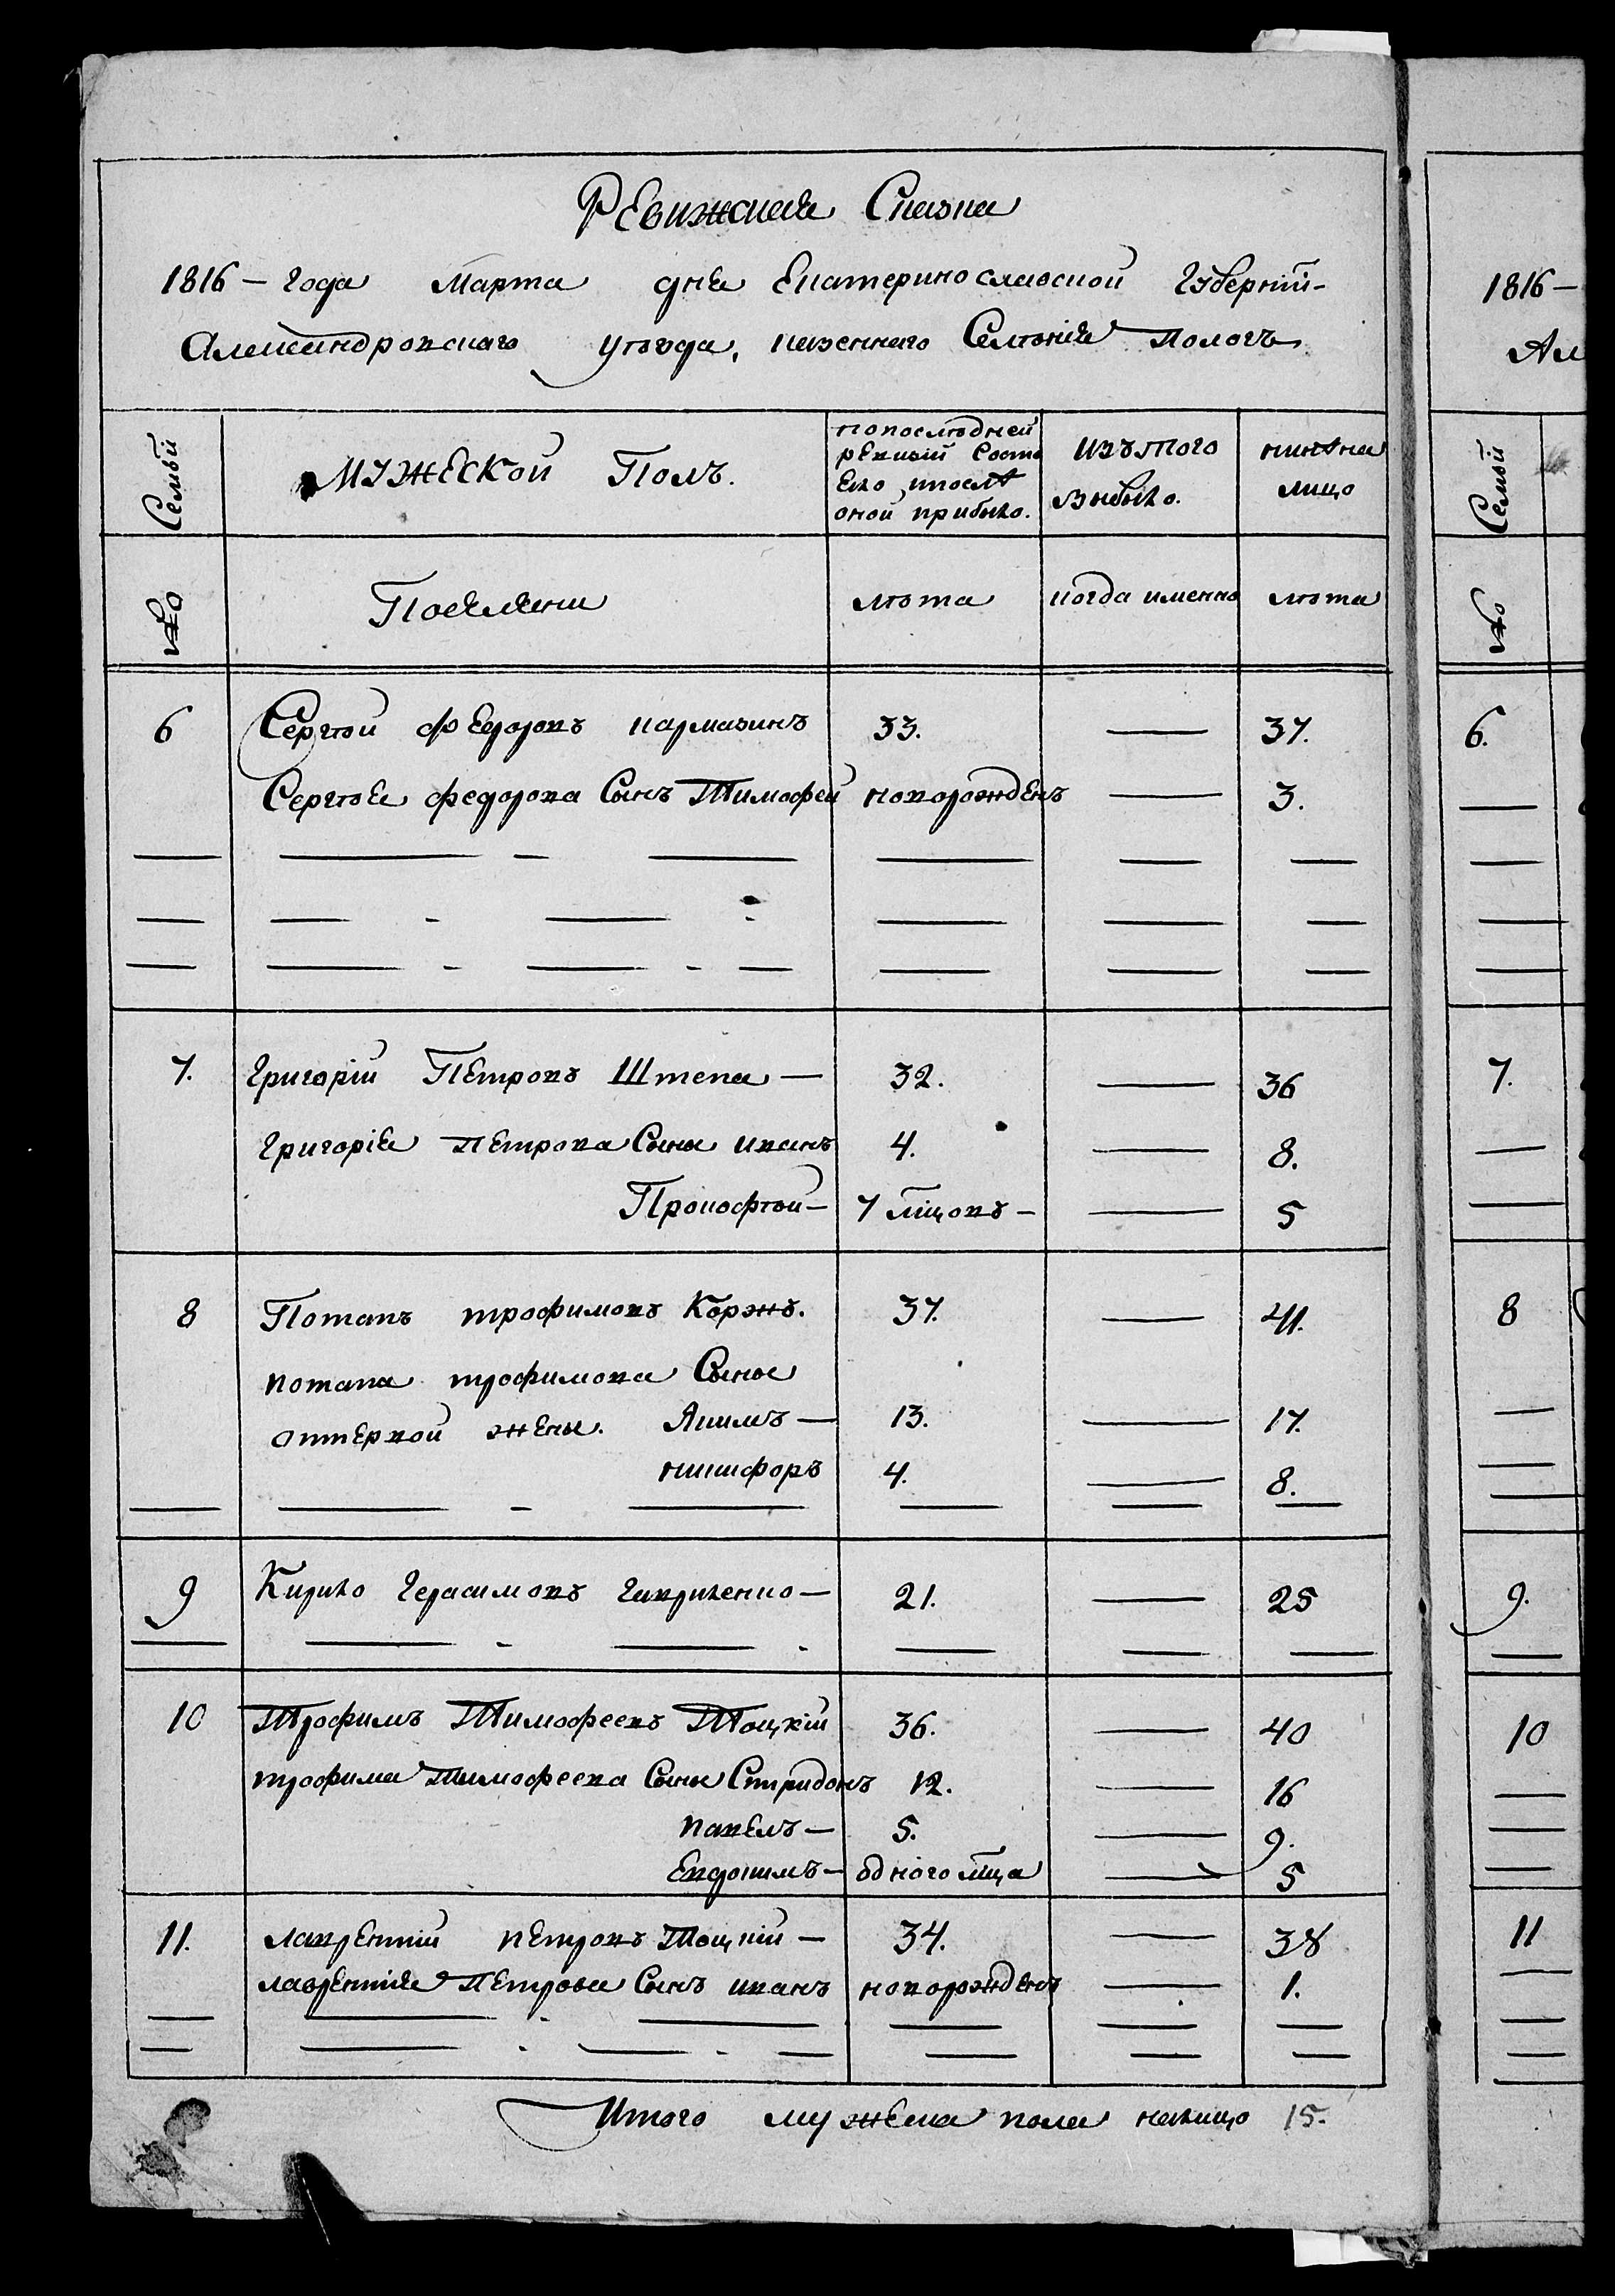 Ревижская Сказка
1816 – года Марта дня Екатеринославской Губернии
Александровскаго уъзда, казеннаго Селънія Пологъ
Семьи
Мужеской Полъ.
попослъдней ревизіи Состояло ипослѣ оной прибыло.
изътого Выбыло.
нинѣ на лицо
№
Поселяни
лъта
когда именно
лъта
6 Сергъй Федоровъ кармазинъ 33. — 37.
Сергъя федорова Сынъ Тимофей новорожденъ — 3.
7. Григорій Петровъ Штепа — 32. — 36
Григорія Петрова Сыны иванъ 4. — 8.
Прокофъй — 7 мцовъ — — 5
8 Потапъ трофимовъ Коржъ. 37. — 41.
потапа трофимова Сыны
отпервой жены. Якимъ — 13. — 17.
никифоръ 4. — 8.
9 Кирило Герасимовъ гавриленко — 21. — 25
10 Трофимъ Тимофеевъ Тоцкій 36. — 40
трофима Тимофеева Сыны Спиридонъ 12. — 16
павелъ — 5. — 9.
Евдокимъ — одного мца — 5
11. лаврентій петровъ Тоцкій — 34. — 38
лаврентія Петрова Сынъ иванъ новорожденъ — 1.
Итого мужеска пола налицо 15.
1816 –
Ал
Семьи
№
6.
7.
8
9.
10
11